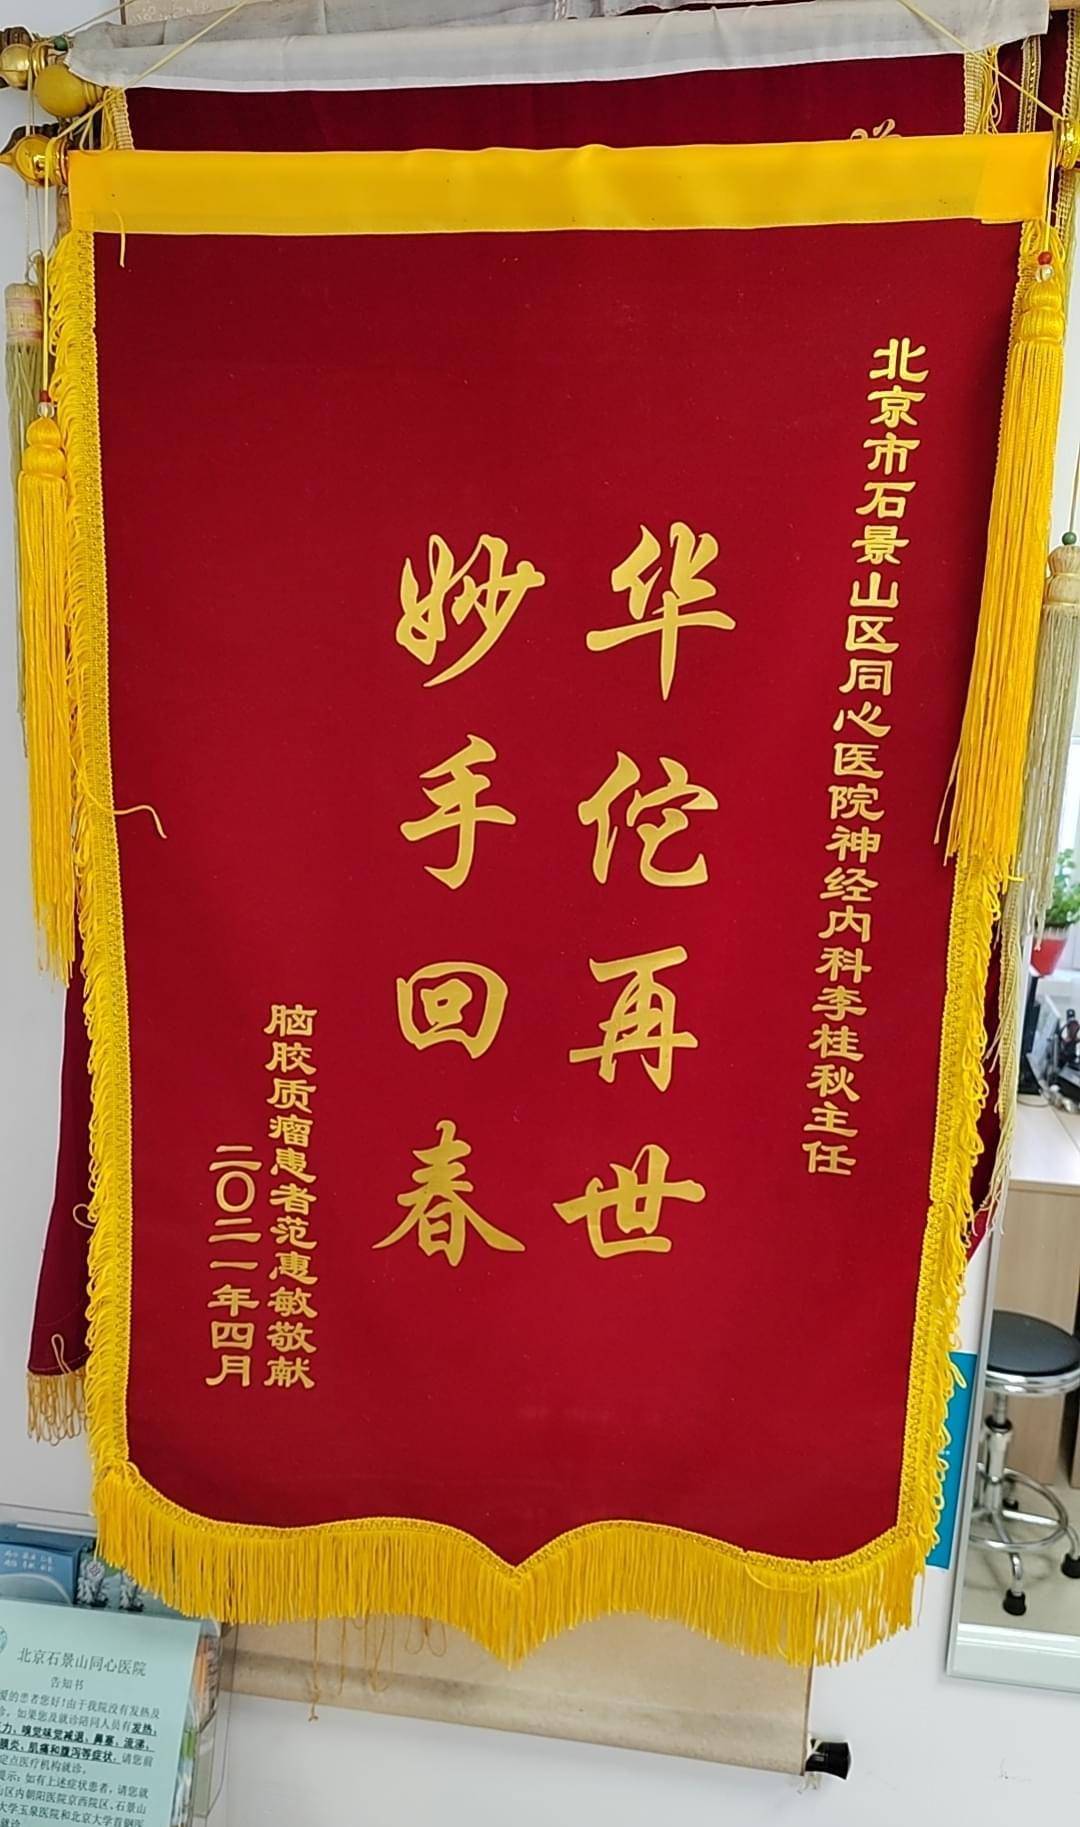 北京市石景山区同心医院神经内科李桂秋主任
华佗再世
妙手回春
脑胶质瘤患者范惠敏敬献
二〇二一年四月
北京石景山同心医院
告知书
爱的患者您好！由于我院没有发热及
诊，如果您及就诊陪同人员有发热，
乏力，嗅觉味觉减退，鼻塞，流涕，
膜炎，肌痛和腹泻等症状，请您前
定点医疗机构就诊。
提示：如有上述症状患者，请您就
山区内朝阳医院京西院区、石景山
大学玉泉医院和北京大学首钢医
就诊